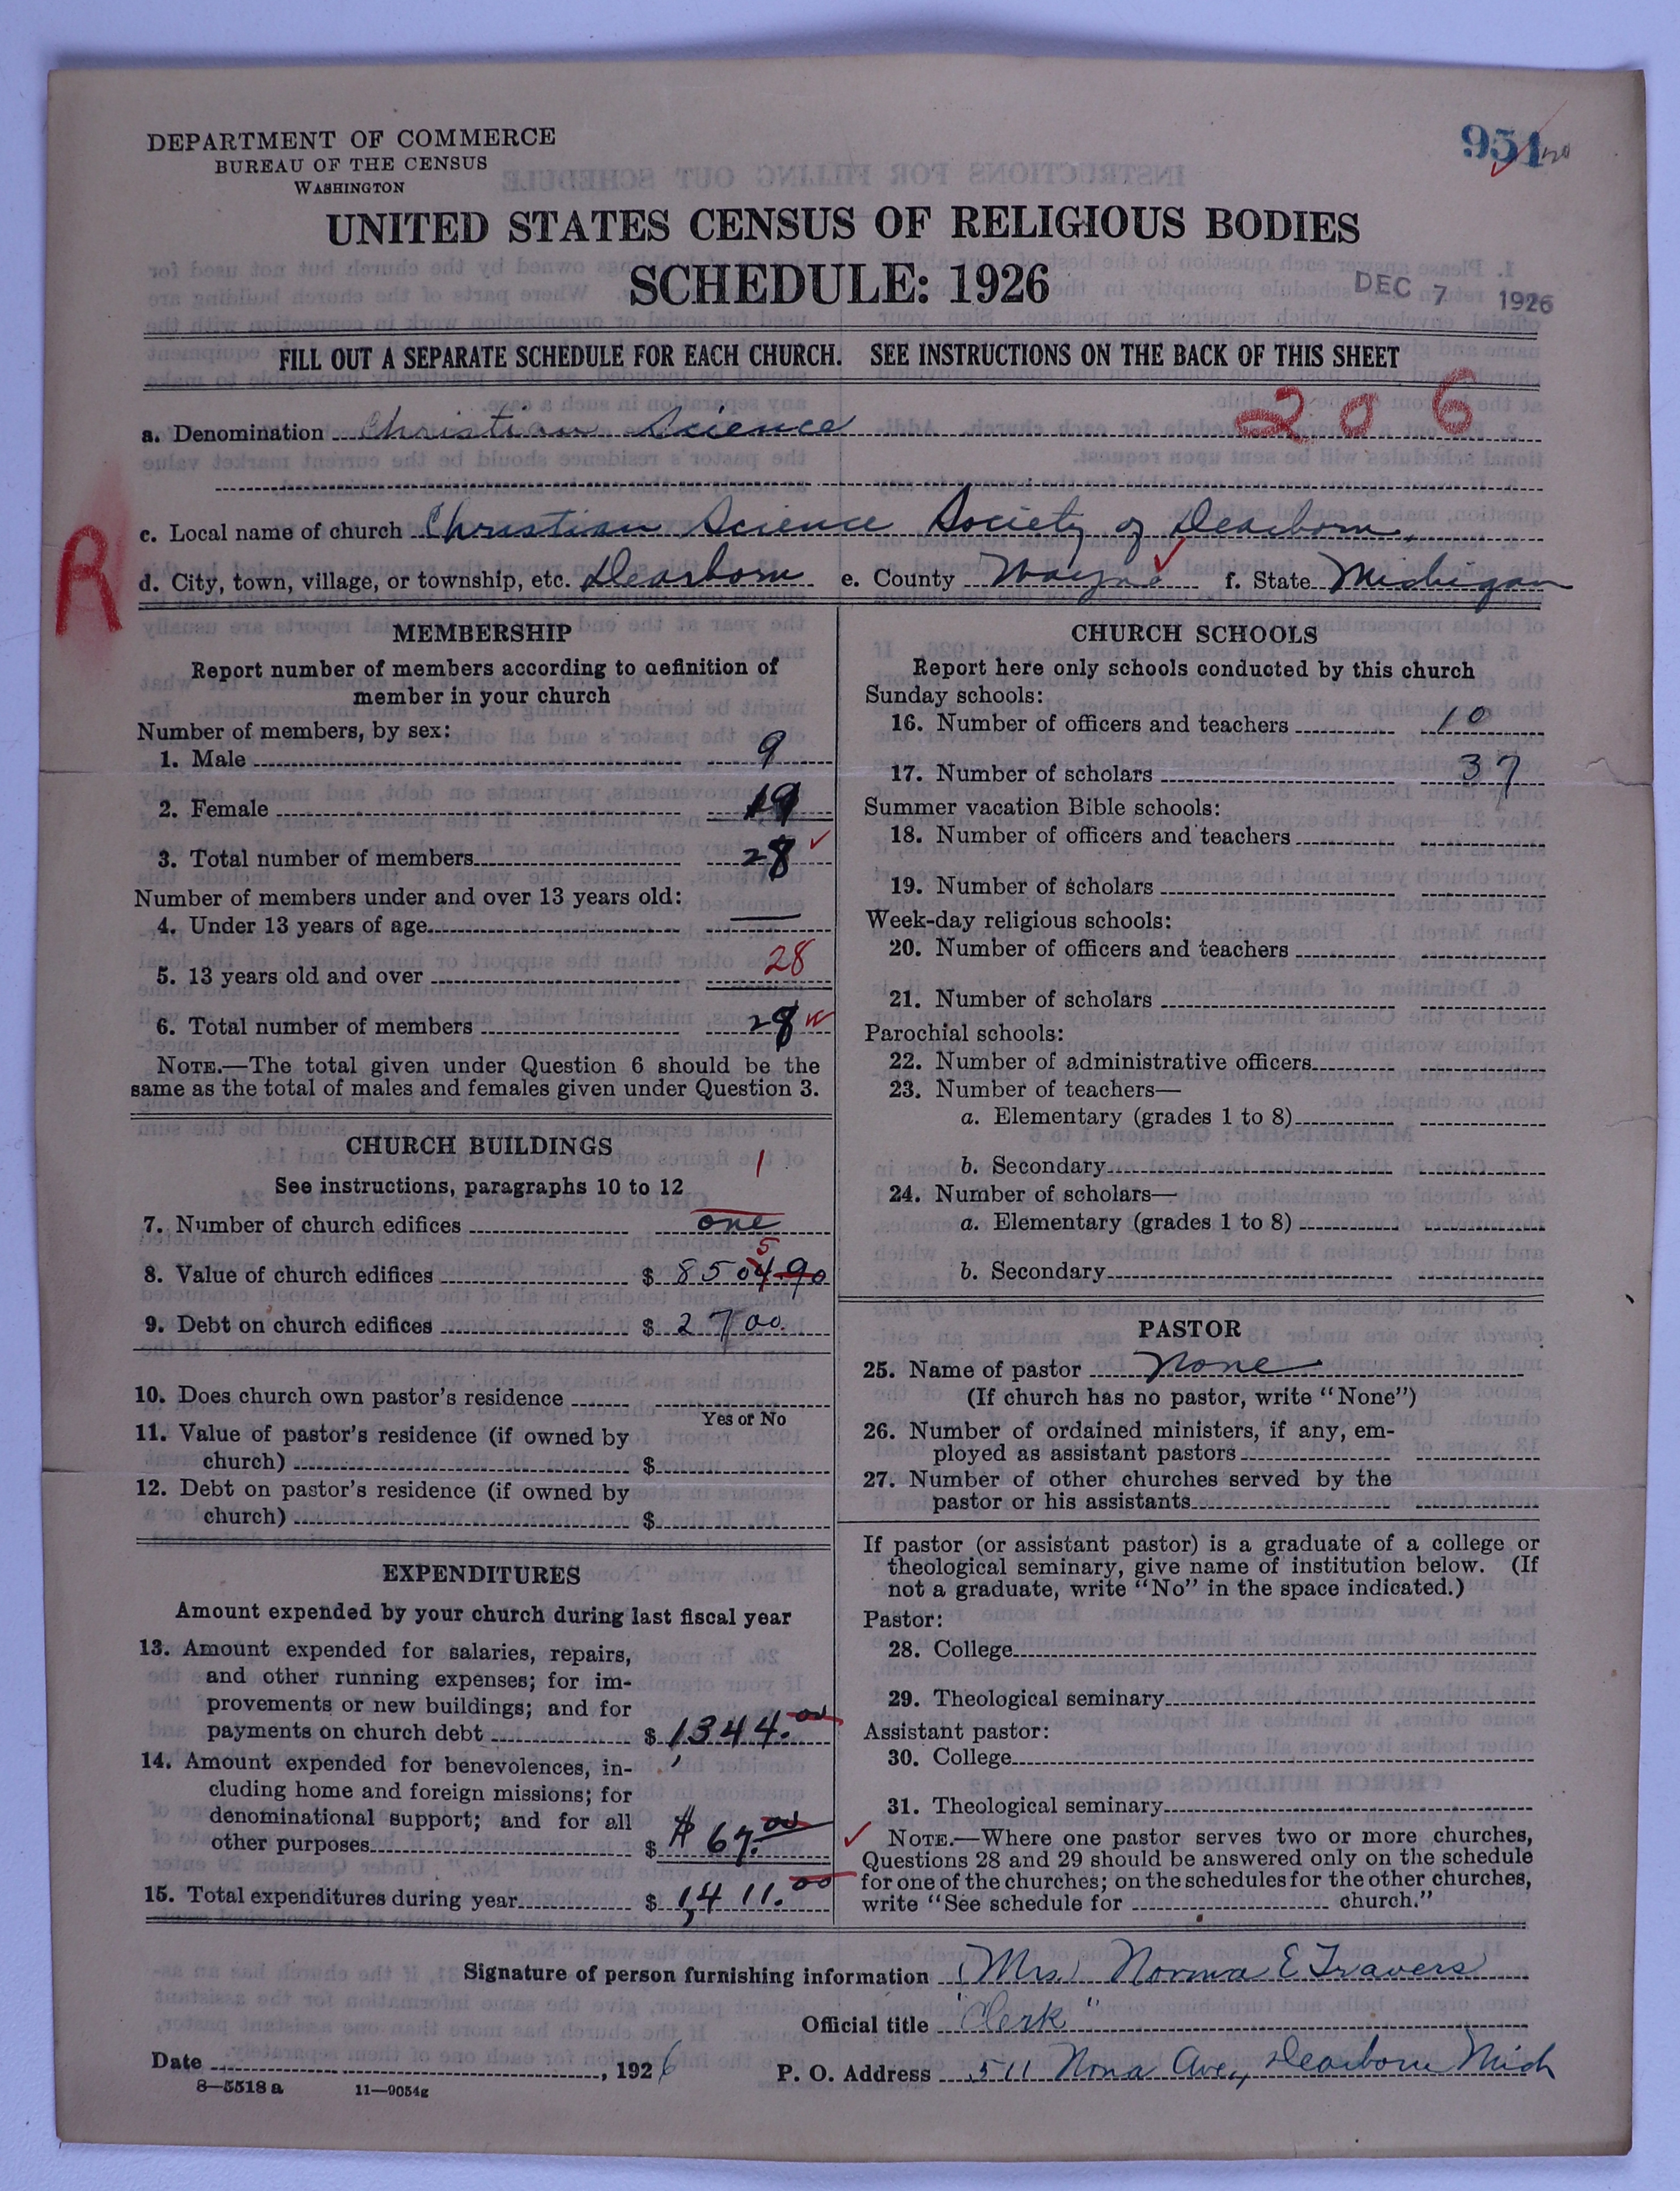 DEPARTMENT OF COMMERCE
BUREAU OF THE CENSUS
WASHINGTON
951
UNITED STATES CENSUS OF RELIGIOUS BODIES
SCHEDULE: 1926
DEC 7 1926
FILL OUT A SEPARATE SCHEDULE FOR EACH CHURCH. SEE INSTRUCTIONS ON THE BACK OF THIS SHEET
206
a. Denomination Christian Science
c. Local name of church Christian Science Society of Dearborn,
R
d. City, town, village, or township, etc. Dearborn e. County Wayne f. State Michigan
MEMBERSHIP
Report number of members according to definition of
member in your church
Number of members, by sex:
1. Male 9
2. Female 19
3. Total number of members 28
Number of members under and over 13 years old:
4. Under 13 years of age —
5. 13 years old and over 28
6. Total number of members 28
NOTE.—The total given under Question 6 should be the
same as the total of males and females given under Question 3.
CHURCH BUILDINGS
1
See instructions, paragraphs 10 to 12
7. Number of church edifices one
5
8. Value of church edifices $ 8504.90
9. Debt on church edifices $ 2700.
10. Does church own pastor's residence
Yes or No
11. Value of pastor's residence (if owned by
church) $
12. Debt on pastor's residence (if owned by
church) $
EXPENDITURES
Amount expended by your church during last fiscal year
13. Amount expended for salaries, repairs,
and other running expenses; for im-
provements or new buildings; and for
payments on church debt $ 1344.00
14. Amount expended for benevolences, in-
cluding home and foreign missions; for
denominational support; and for all
other purposes $ $ 67.00
15. Total expenditures during year $ 1,411.00
CHURCH SCHOOLS
Report here only schools conducted by this church
Sunday schools:
16. Number of officers and teachers 10
17. Number of scholars 37
Summer vacation Bible schools:
18. Number of officers and teachers
19. Number of scholars
Week-day religious schools:
20. Number of officers and teachers
21. Number of scholars
Parochial schools:
22. Number of administrative officers
23. Number of teachers—
a. Elementary (grades 1 to 8)
b. Secondary
24. Number of scholars—
a. Elementary (grades 1 to 8)
b. Secondary
PASTOR
25. Name of pastor None
(If church has no pastor, write "None")
26. Number of ordained ministers, if any, em-
ployed as assistant pastors
27. Number of other churches served by the
pastor or his assistants
If pastor (or assistant pastor) is a graduate of a college or
theological seminary, give name of institution below. (If
not a graduate, write "No" in the space indicated.)
Pastor:
28. College
29. Theological seminary
Assistant pastor:
30. College
31. Theological seminary
NOTE.—Where one pastor serves two or more churches,
Questions 28 and 29 should be answered only on the schedule
for one of the churches; on the schedules for the other churches,
write "See schedule for church."
Signature of person furnishing information (Mrs.) Norma E Travers
Official title "Clerk"
Date , 1926 P. O. Address 511 Nona Ave., Dearborn Mich
8—5518 a 11—9054g